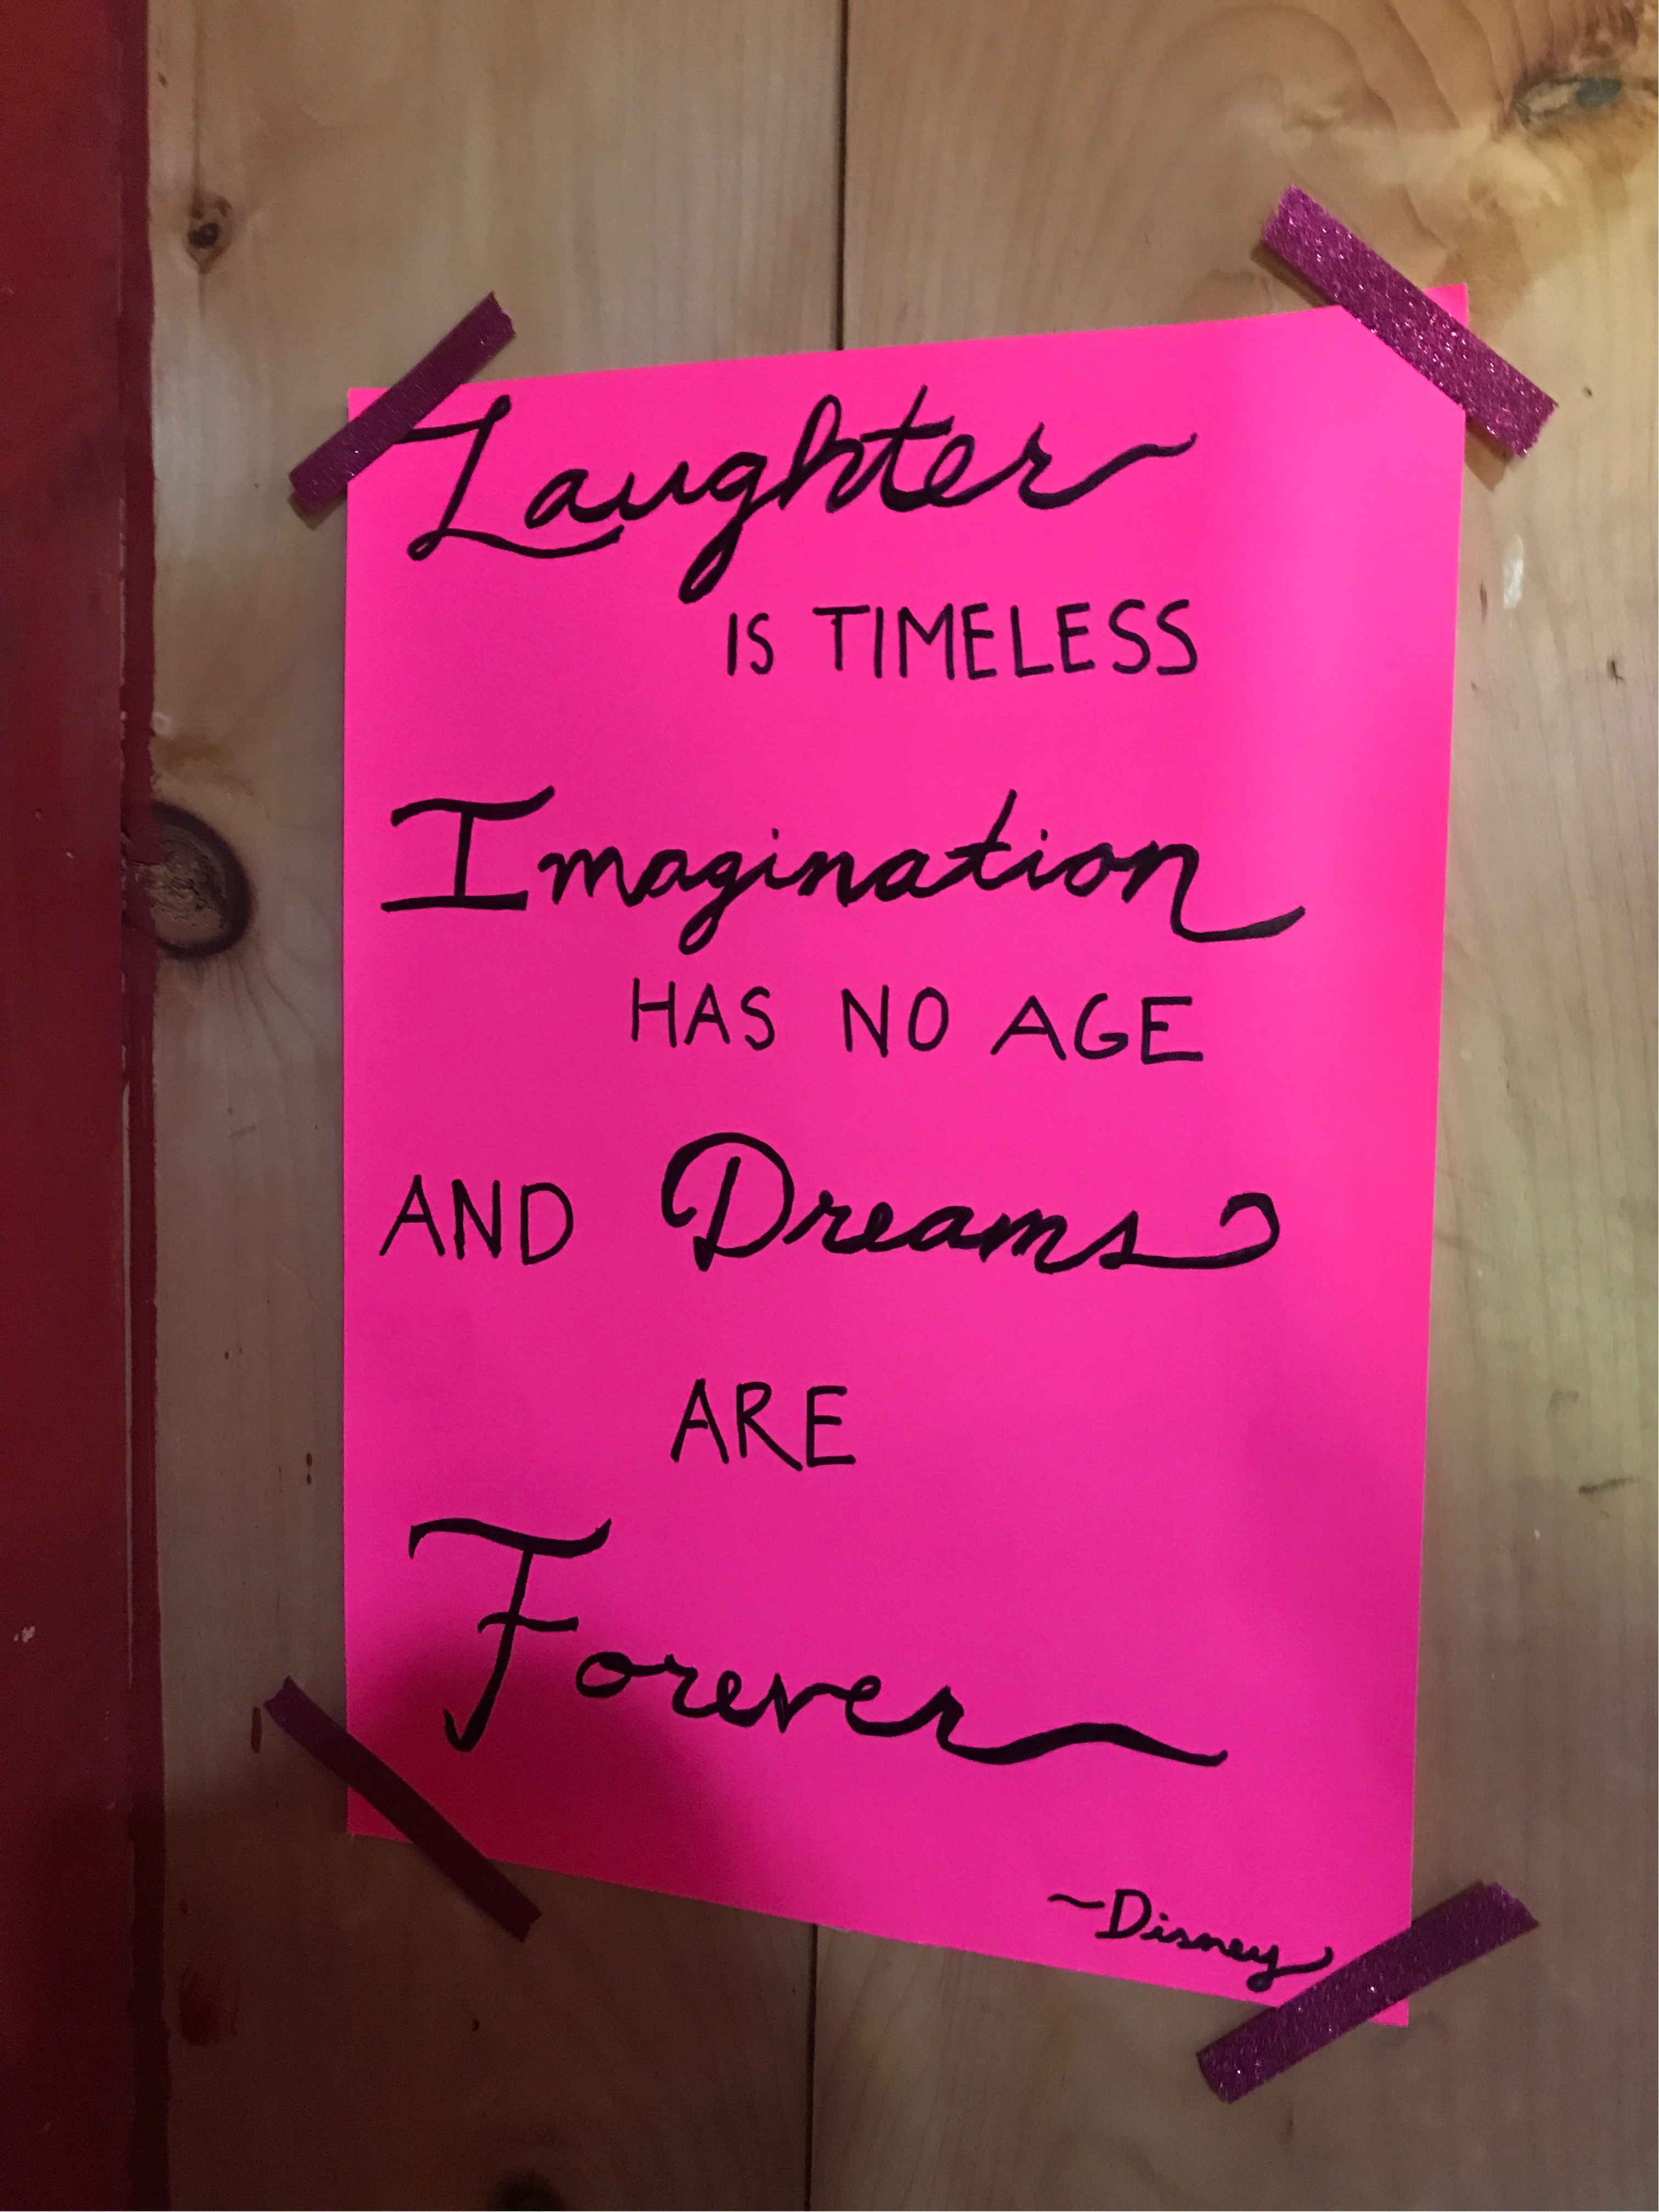 Laughter
IS TIMELESS
Imagination
HAS NO AGE
AND Dreams
ARE
Forever
~Disney